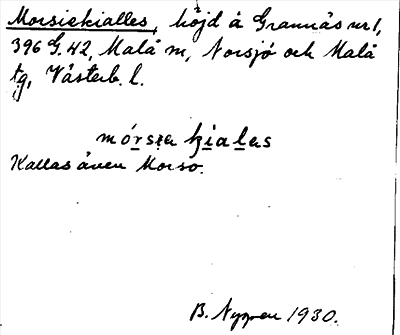 Morsiekialles, höjd å Grannäs nr 1,
396 G. 42, Malå m, Norsjö och Malå
tg, Västerb. l.
mórsɛa kialas
Kallas även Morso.
B. Nygren 1930.